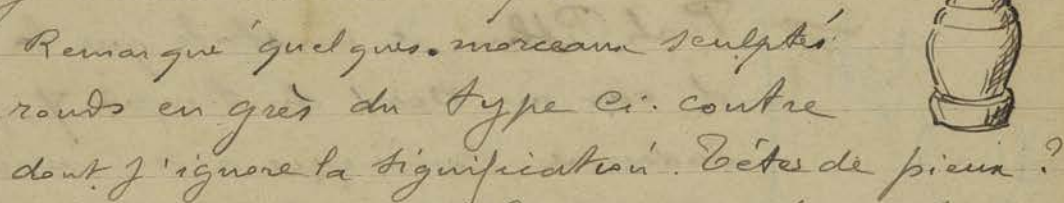 Remarqué quelques morceaux sculptés
ronds en grès du type ci-contre
dont j'ignore la signification. Têtes de pieux ?